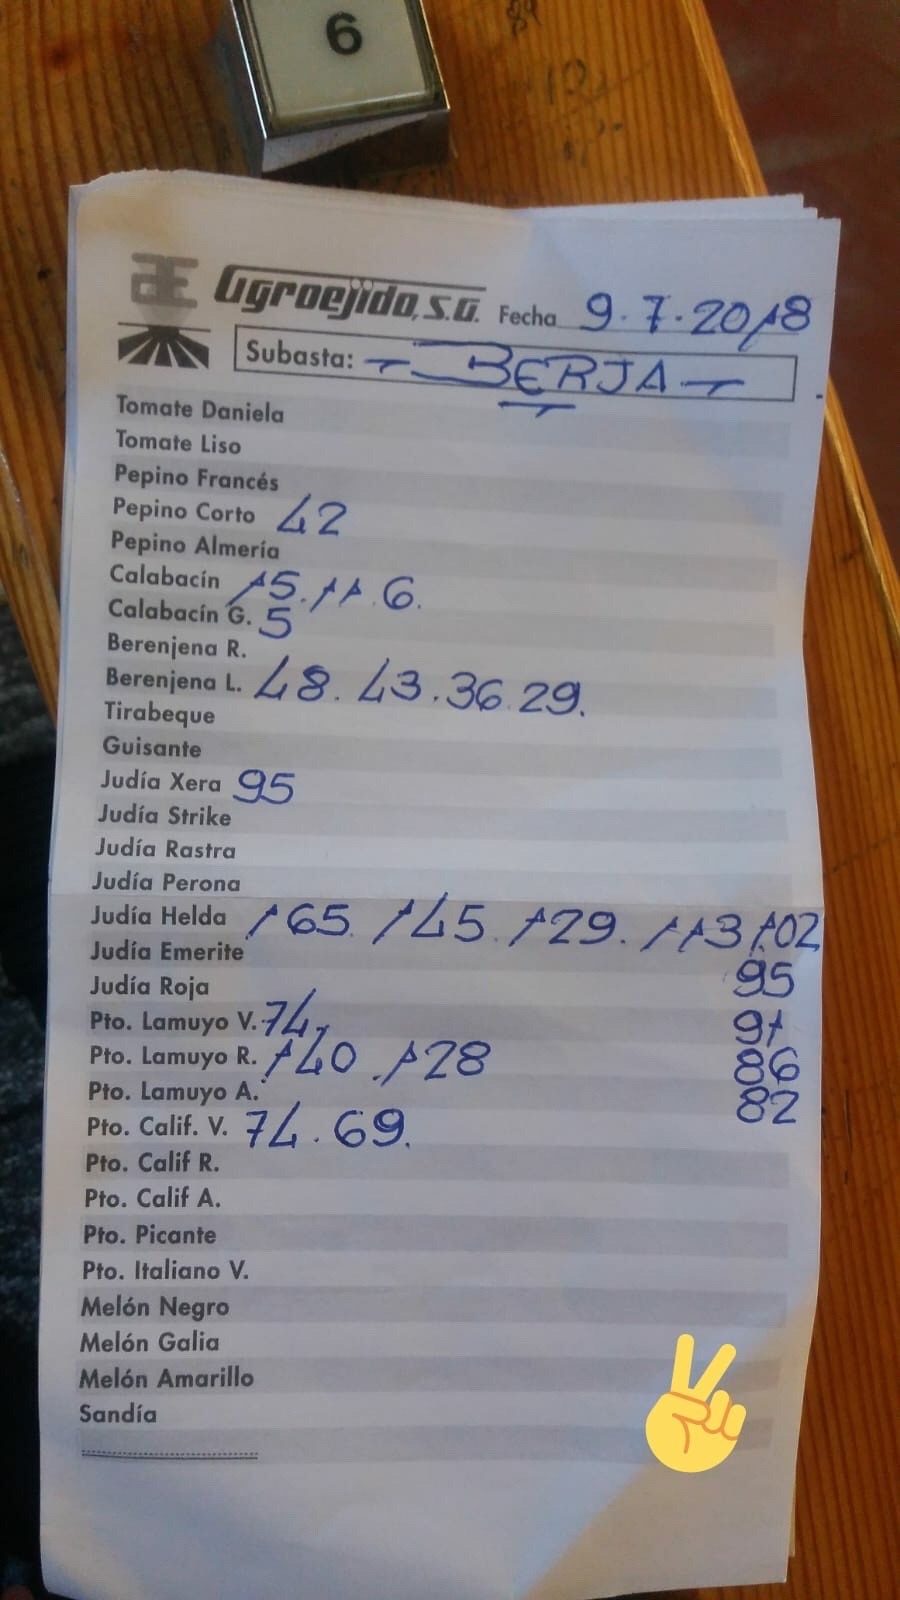 6
Agroejido, S.A. Fecha 9.7.2018
Subasta: - BERJA -
Tomate Daniela
Tomate Liso
Pepino Francés
Pepino Corto 42
Pepino Almería
Calabacín 15. 11. 6.
Calabacín G. 5
Berenjena R.
Berenjena L. 48. 43. 36. 29.
Tirabeque
Guisante
Judía Xera 95
Judía Strike
Judía Rastra
Judía Perona
Judía Helda 165. 145. 129. 113 102
Judía Emerite 95
Judía Roja
Pto. Lamuyo V. 74. 91
Pto. Lamuyo R. 140. 128 86
Pto. Lamuyo A. 82
Pto. Calif. V. 74. 69.
Pto. Calif R.
Pto. Calif A.
Pto. Picante
Pto. Italiano V.
Melón Negro
Melón Galia
Melón Amarillo
Sandía